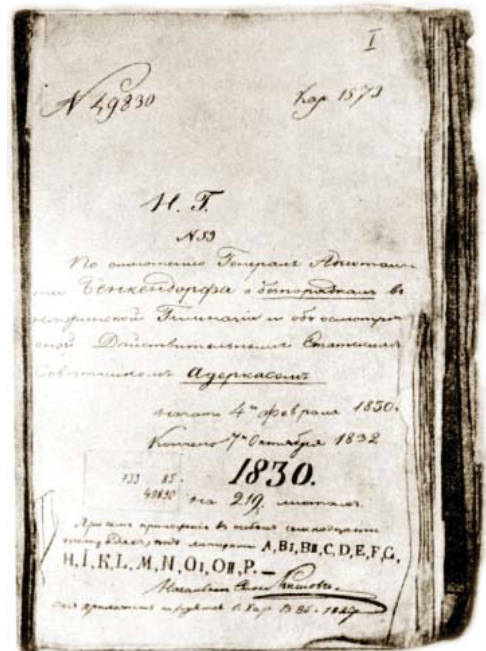 I
N 49830 Кар 1573
Н. Г.
N 53
По отношению Генералъ Адъютан-
та Бенкендорфа о безпорядкахъ въ
Нѣжинской Гимназіи и объ осмотрѣ
оной Действительнымъ Статскимъ
Совѣтникомъ Адеркасомъ
начато 4го февраля 1830.
Кончено 7го Октября 1832
733 85.
49830
1830.
на 219. листахъ.
A, BI, BII, C, D, E, F, G,
H, I, K, L, M, N, OI, OII, P. —